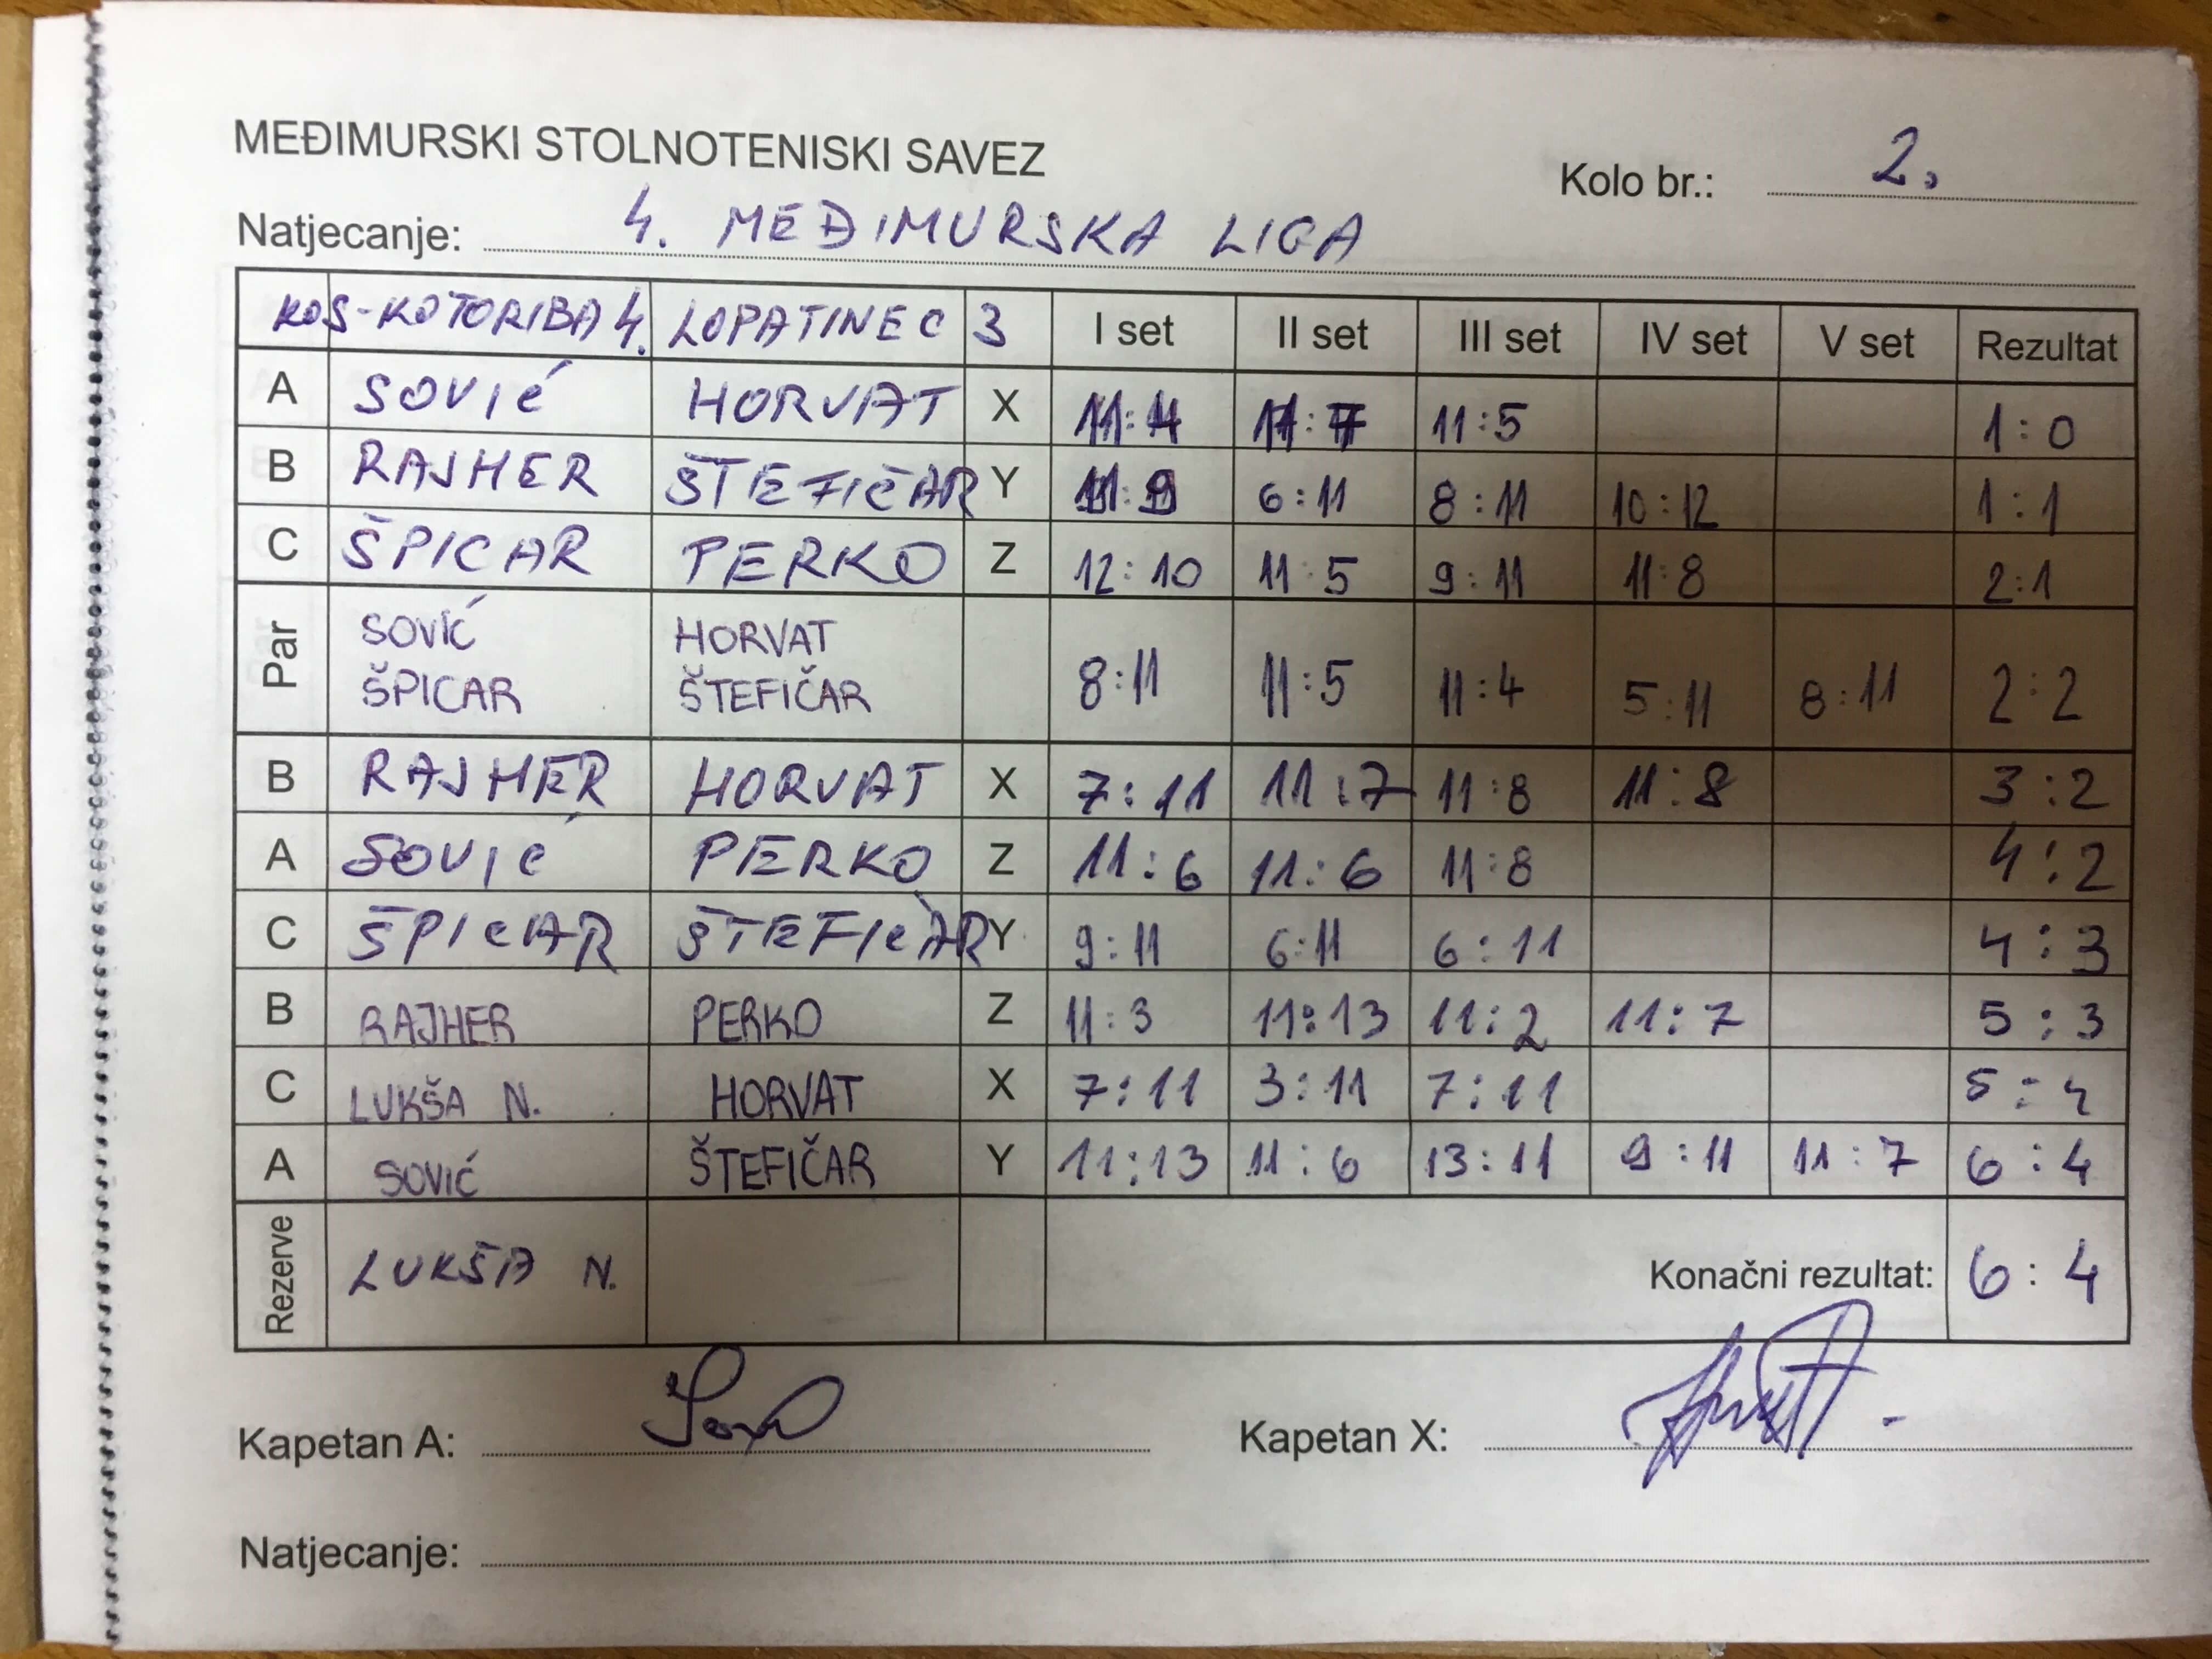 MEĐIMURSKI STOLNOTENISKI SAVEZ
Kolo br.: 2.
Natjecanje: 4. MEĐIMURSKA LIGA
KOS-KOTORIBA 4. LOPATINEC 3 I set II set III set IV set V set Rezultat
A SOVIĆ HORVAT X 11:4 11:7 11:5 1:0
B RAJHER ŠTEFIČAR Y 11:9 6:11 8:11 10:12 1:1
C ŠPICAR PERKO Z 12:10 11:5 9:11 11:8 2:1
Par SOVIĆ ŠPICAR HORVAT ŠTEFIČAR 8:11 11:5 11:4 5:11 8:11 2:2
B RAJHER HORVAT X 7:11 11:7 11:8 11:8 3:2
A SOVIĆ PERKO Z 11:6 11:6 11:8 4:2
C ŠPICAR ŠTEFIČAR Y 9:11 6:11 6:11 4:3
B RAJHER PERKO Z 11:3 11:13 11:2 11:7 5:3
C LUKŠA N. HORVAT X 7:11 3:11 7:11 5:4
A SOVIĆ ŠTEFIČAR Y 11:13 11:6 13:11 9:11 11:7 6:4
Rezerve LUKŠA N. Konačni rezultat: 6:4
Kapetan A: Kapetan X:
Natjecanje: